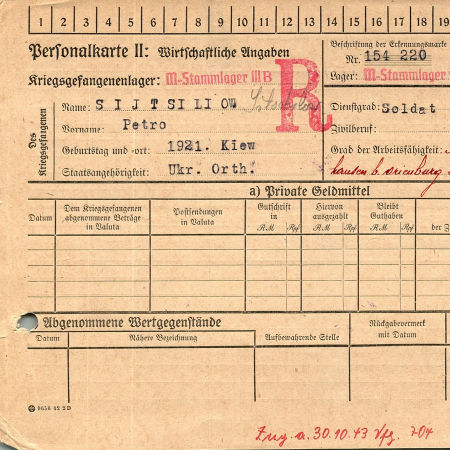 1 2 3 4 5 6 7 8 9 10 11 12 13 14 15 16 17 18 19
Personalkarte II: Wirtschaftliche Angaben
Kriegsgefangenenlager: M-Stammlager III B
R
Beschriftung der Erkennungsmarke
Nr. 154 220
Lager: M-Stammlager
Des Kriegsgefangenen
Name: SIJTSILIOW
Vorname: Petro
Geburtstag und -ort: 1921. Kiew
Staatsangehörigkeit: Ukr. Orth.
Dienstgrad: Soldat
Zivilberuf:
Grad der Arbeitsfähigkeit:
hausen b. Orienburg
a) Private Geldmittel
Datum
Dem Kriegsgefangenen abgenommene Beträge in Valuta
Postsendungen in Valuta
Gutschrift in
RM Rpf
Hiervon ausgezahlt
RM Rpf
Bleibt Guthaben
RM Rpf
der Z
Abgenommene Wertgegenstände
Datum
Nähere Bezeichnung
Aufbewahrende Stelle
Rückgabevermerk mit Datum
0658 42 2D
Zug. a. 30.10.43 Vfg. 204